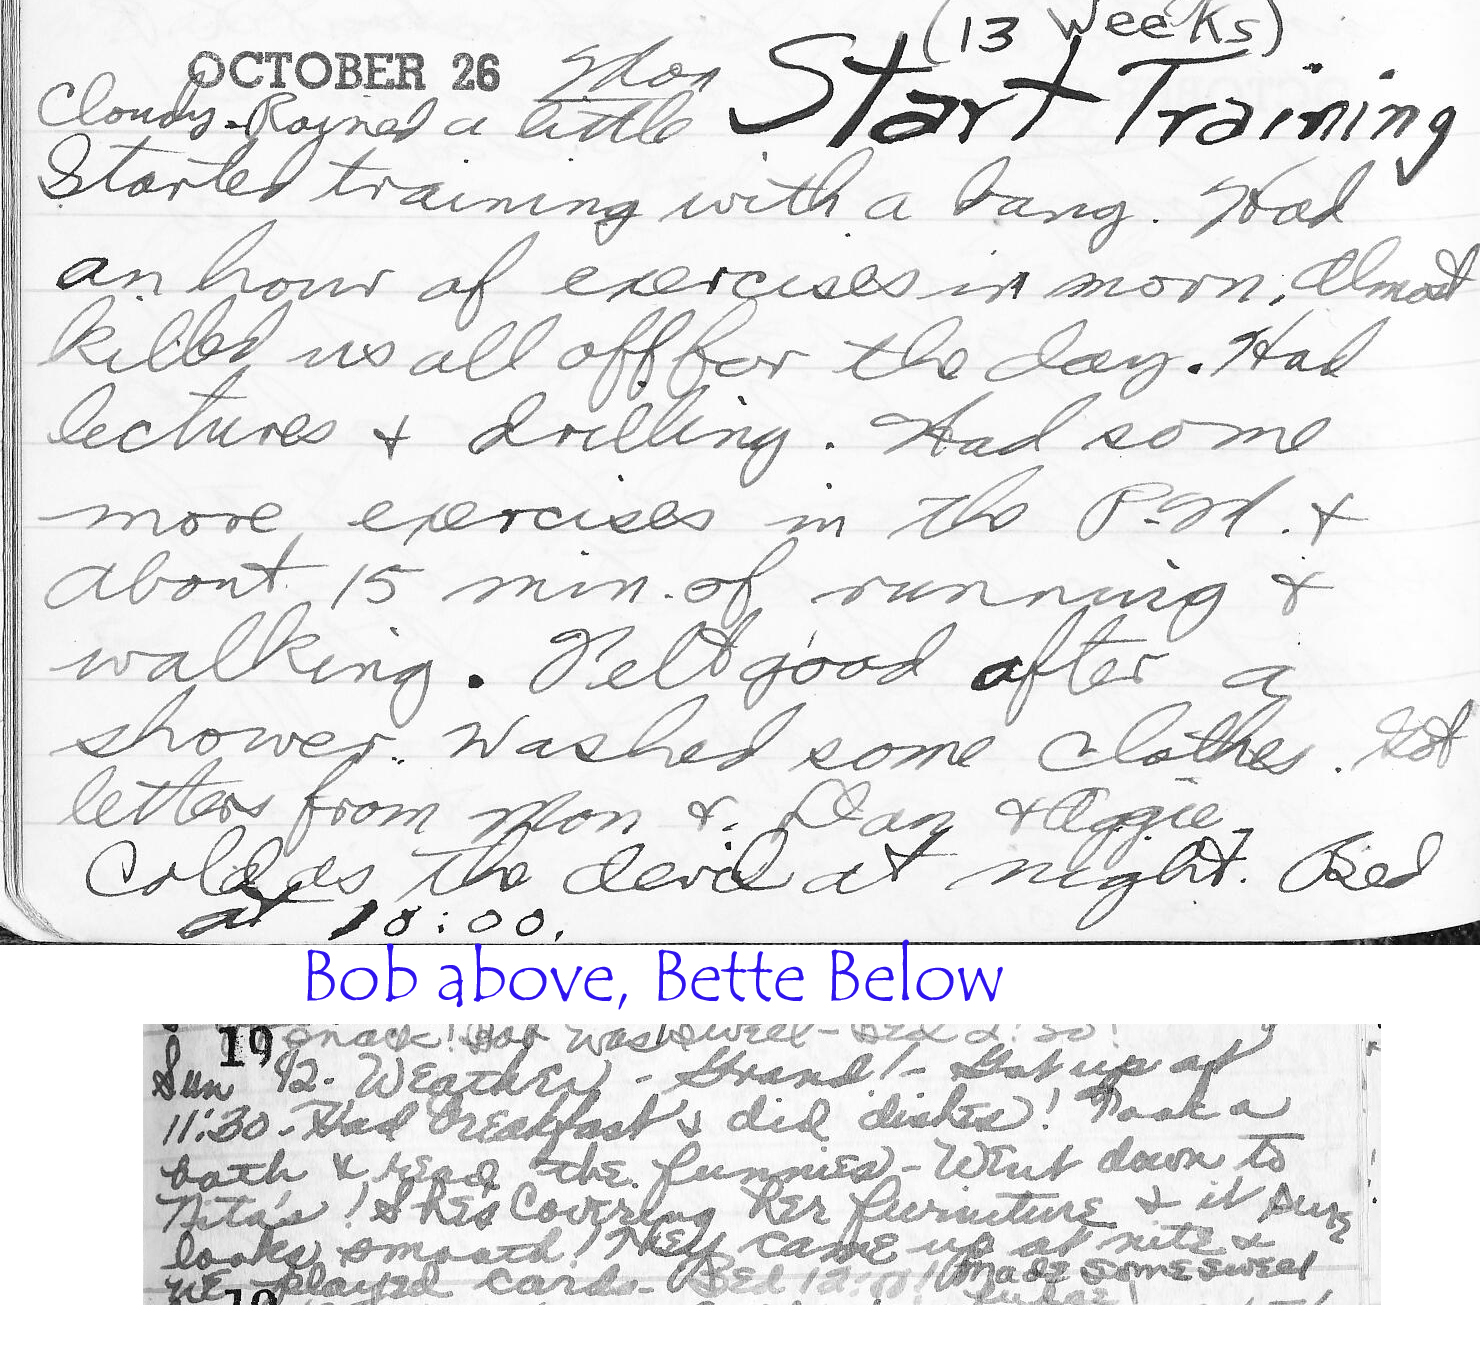 (13 Weeks)
OCTOBER 26 Mon Start Training
Cloudy-Rained a little
Started training with a bang. Had
an hour of exercises in morn, Almost
killed us all off for the day. Had
lectures & drilling. Had some
more exercises in the P.M. &
about 15 min. of running &
walking. Felt good after a
shower. Washed some clothes. Got
letters from Mom & Dan & Aggie.
Cold as the devil at night. Bed
at 10:00.
Bob above, Bette Below
snack! Bob was sweet - Bed 2:30!
19
Sun 42. Weather - Grand! - Got up at
11:30 - Had breakfast & did dishes! Took a
bath & read the funnies - Went down to
Nita's! She's covering her furniture & it sure
looks smooth! They came up at nite &
we played cards - Bed 12:00! Made some sweet
fudge!
19